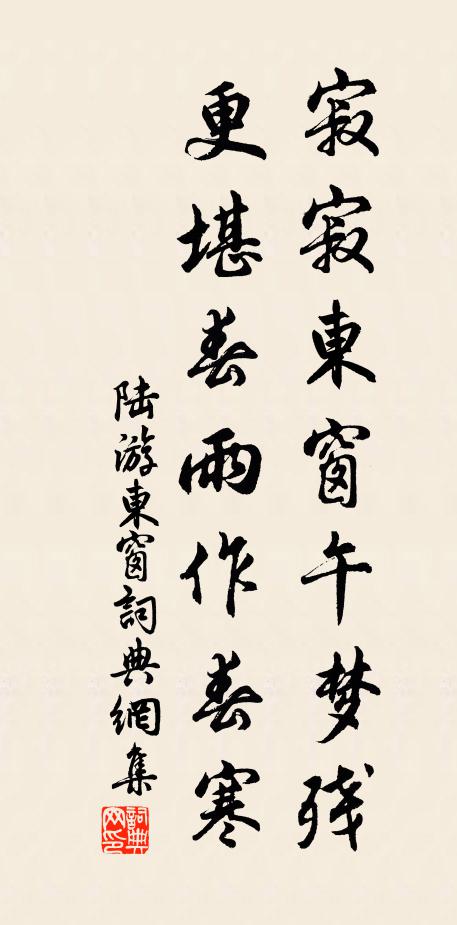 寂寂東窗午梦残
更堪春雨作春寒
陆游東窗詞典網集
詞典网印